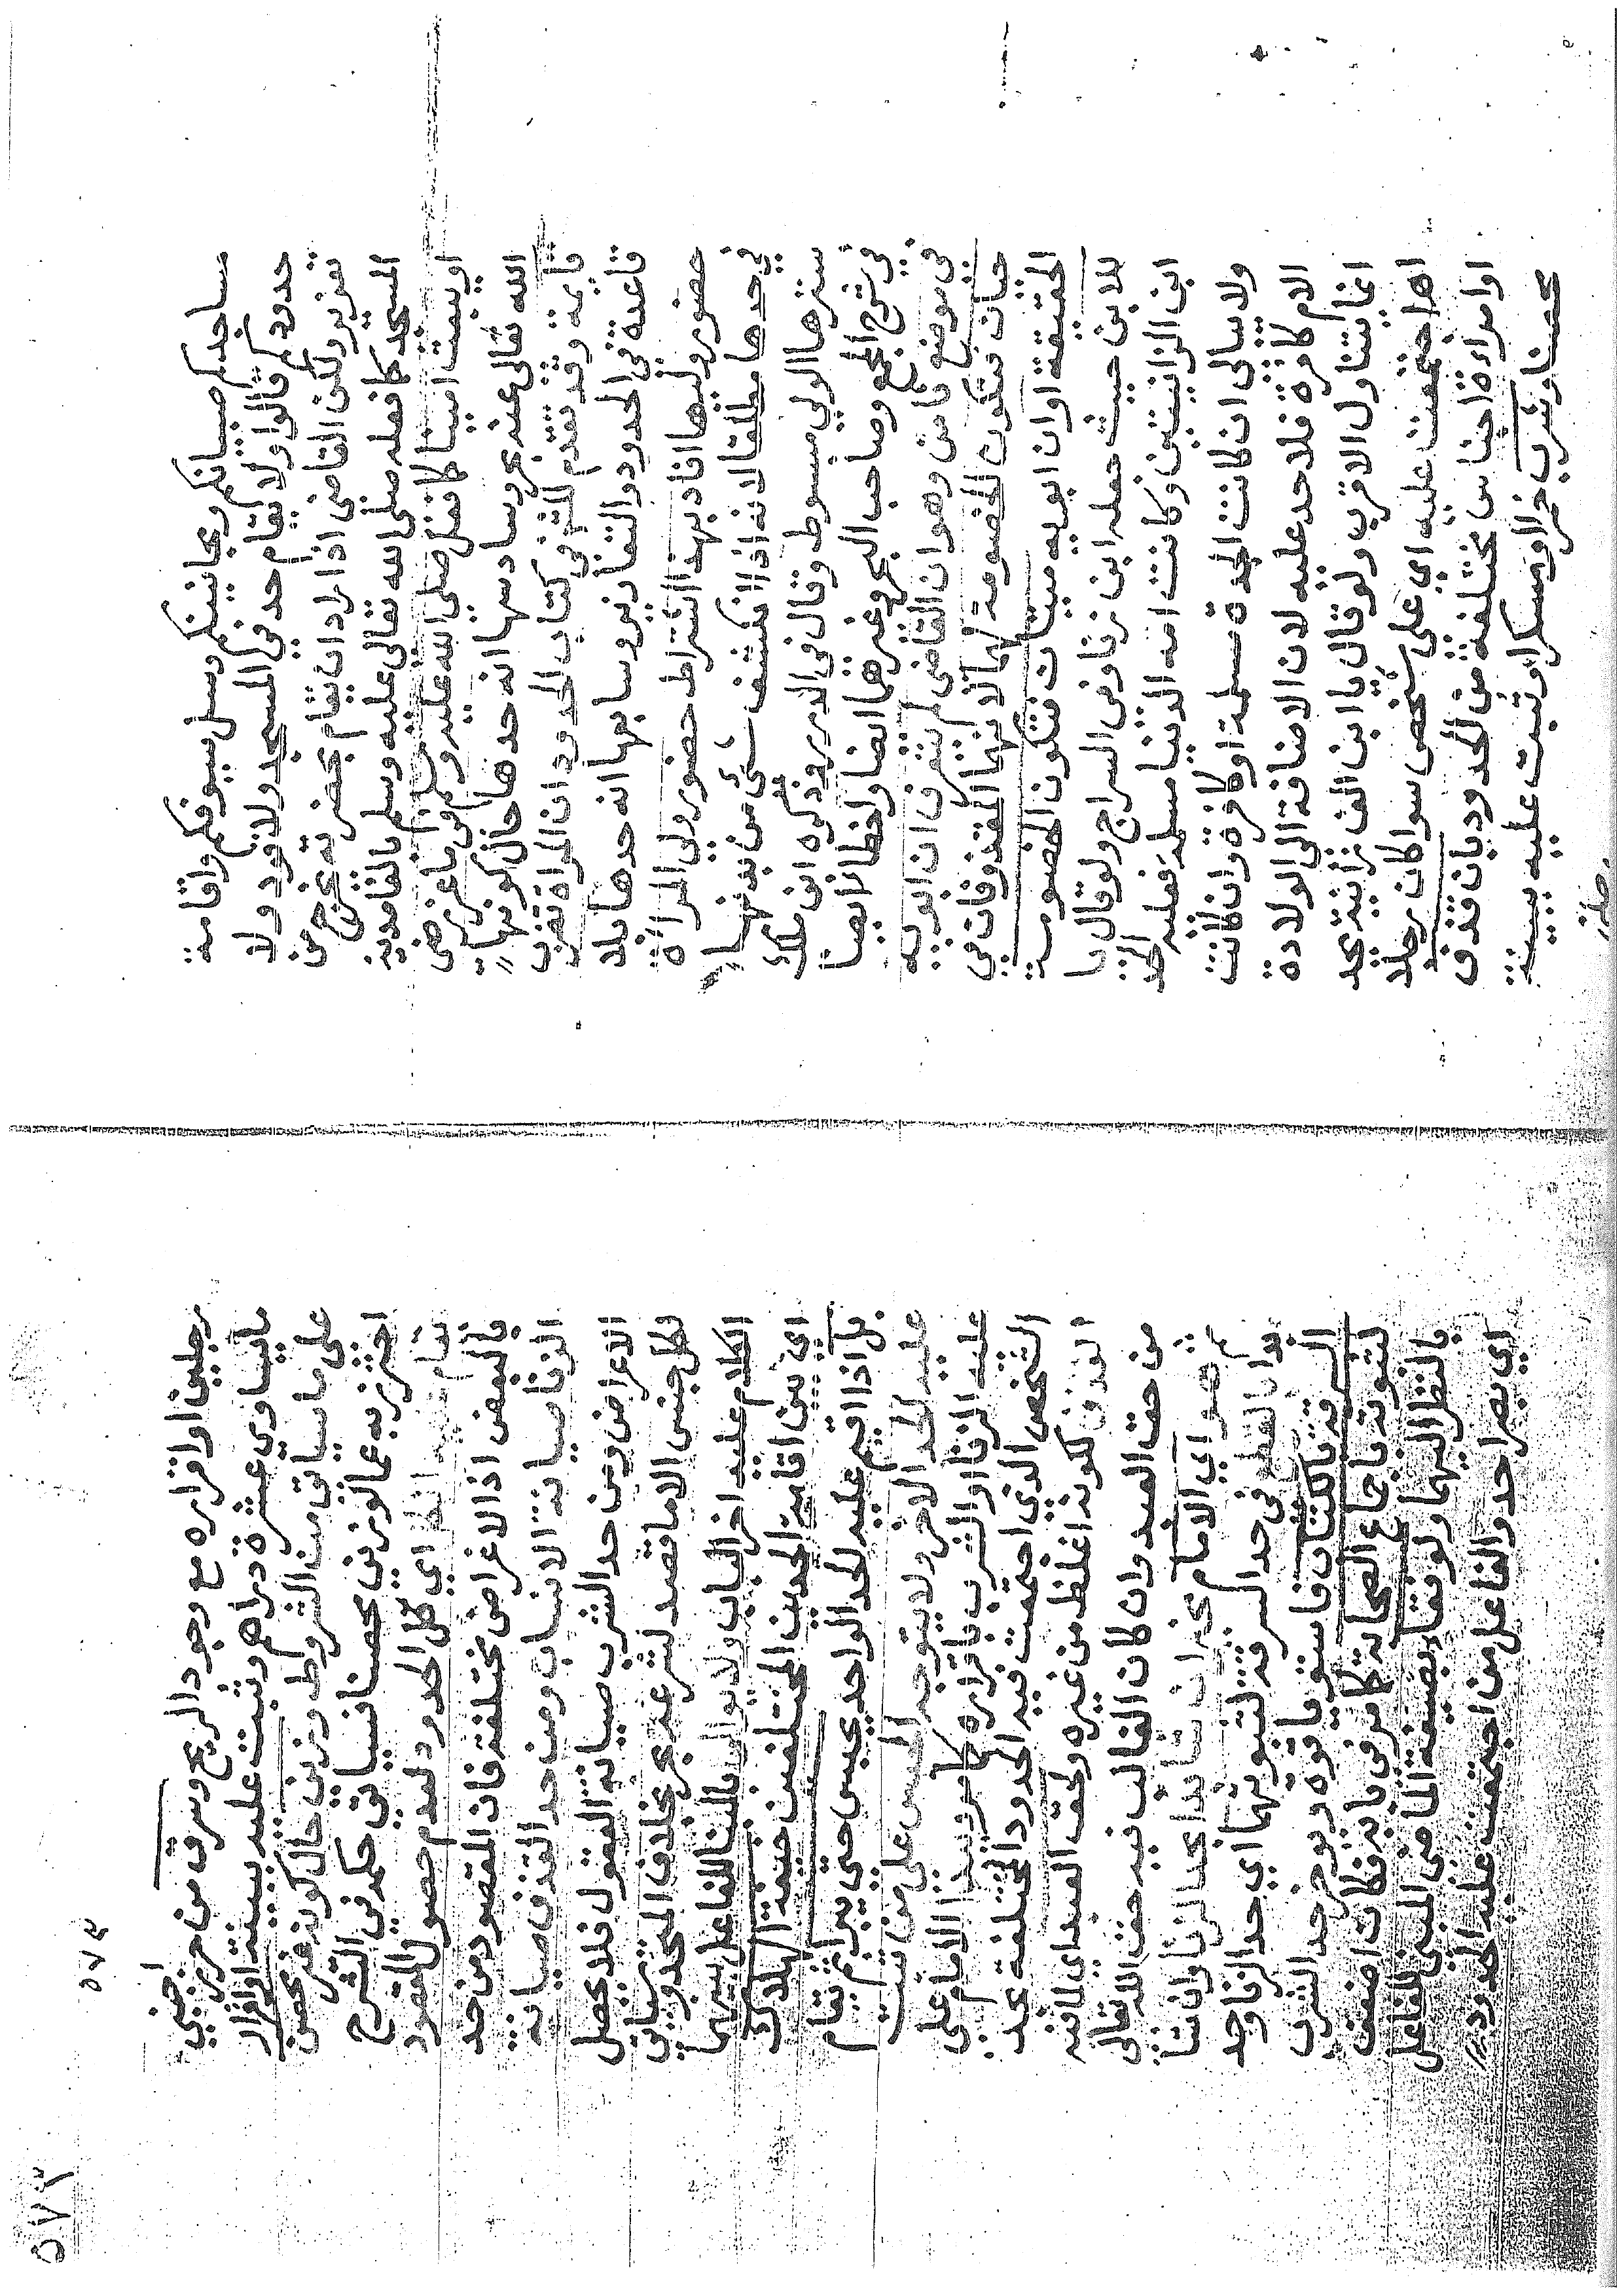 مساجدكم صبيانكم ومجانينكم وسل سيوفكم واقامة
حدودكم قالوا ولا يقام حد في المسجد ولا قود ولا
تعزير ولكن القاضي اذا اراد ان يقام بحضرته يخرج من
المسجد كما فعله صلى الله تعالى عليه وسلم بالغامدية
او يبعث امينا كما فعل صلى الله عليه وسلم في ماعز رضى
الله تعالى عنه وسادسها انه حدها حال كونها
قائمة وقد تقدم في كتاب الحدود ان المراة تضرب
قاعدة في الحدود والتعازير وسابعها انه حدها بلا
حضور وليها افاد بهذا اشتراط حضور ولي المراة
في حدها مطلقا لانه اذا انكشف شئ من بدنها
سترها الولي مبسوط وقال في الدرر وذكره ابن ملك
في شرح المجمع وصاحب البحر وغيرهما ايضا واخطا ايضا
في موضع ثامن وهو ان القاضي لم يتعرف ان ابويه
حيان فتكون الخصومة لهما لانهما المقذوفان في
الحقيقة او ان ابويه ميتان فتكون الخصومة
للابن حيث جعله ابن زنا وفي السراج ولو قال يا
ابن الزانيتين وكانت امه الدنيا مسلمة فعليه الحد
ولا يبالى ان كانت الجدة مسلمة او كافرة وان كانت
الام كافرة فلا حد عليه لان الاضافة الى الولادة
انما يتناول الاقرب ولو قال يا ابن الف زانية يحد
اهـ اجتمعت عليه اي على شخص سوا كان رجلا
او امراءة اجناس مختلفة من الحدود بان قذف
محصنا وشرب خمرا او مسكرا وثبت عليه ببينة
٥٧٣
رجلين او اقراره مع وجود الريح وسرق من حرز اجنبي
ما يساوي عشرة دراهم وثبت عليه ببينة او اقرار
على ما سياتي من الشروط وزنى حال كونه غير محصن
احترز به عما لو زنى محصنا فسياتي حكمه في الشرح
تقام عليه اي كل الحدود لعدم حصول المقصود
بالبعض اذ الاغراض مختلفة فان المقصود من حد
الزنا صيانة الانساب ومن حد القذف صيانة
الاعراض ومن حد الشرب صيانة العقول فلا يحصل
لكل جنس الا ما قصد لشرعه بحر بخلاف المتحد وياتي
الكلام عليه اخر الباب ولا يوالى بالبنا للفاعل بينهما
اي بين اقامة الحدين المختلفين خيفة الهلاك
بل اذا اقيم عليه الحد الواحد يحبس حتى يبرا ثم تقام
عليه الحد الاخر ولا يتوجه الحبس على من ثبت
عليه الزنا او الشرب باقراره كما مر ويبدا الامام على
الشخص الذي اجتمعت فيه الحدود المختلفة بحد
القذف لكونه اغلظ من غيره ولحق العبد اي لما فيه
من حق العبد وان كان الغالب فيه حق الله تعالى
ثم هو اي الامام مخير ان شا بدا بحد الزنا وان شا
بدا بالقطع في حد السرقة لثبوتهما اي حد الزنا وحد
السرقة بالكتاب فاستويا قوة ويوخر حد الشرب
لثبوته باجماع الصحابة كما مر في بابه فكان اضعف
بالنظر اليهما ولو فقا بصيغة الماضي المبني للفاعل
اي بصر احد والفاعل من اجتمعت عليه الحدود